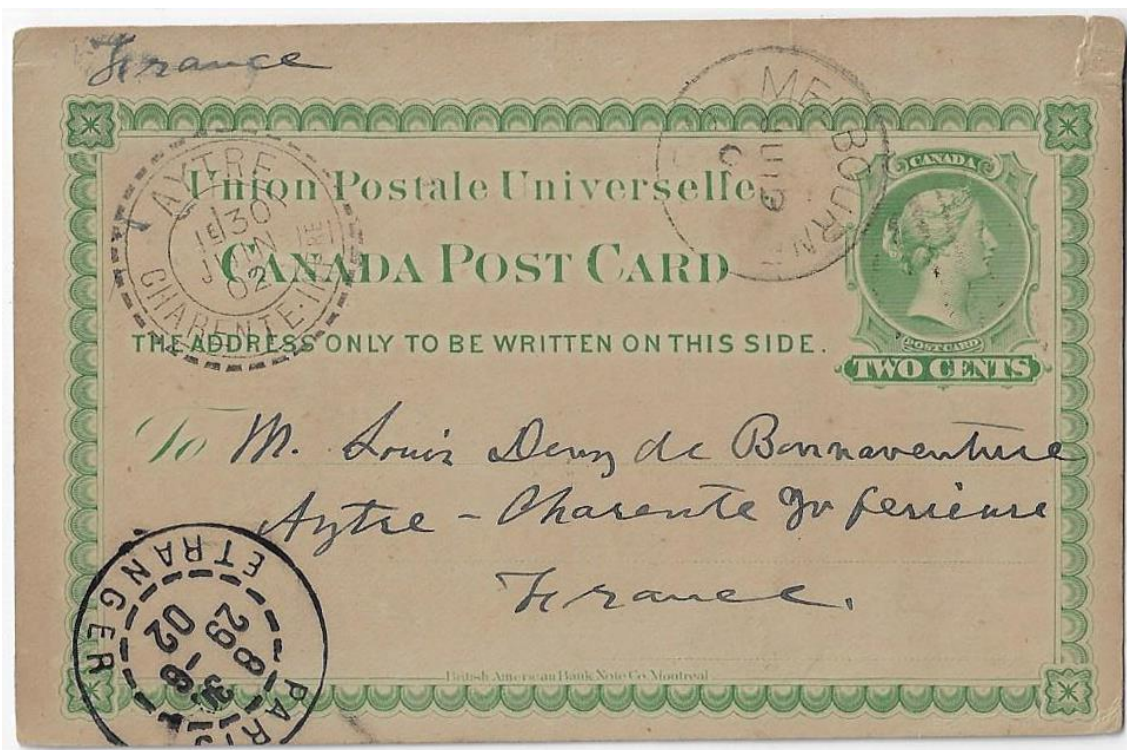 France
MELBOURN
JU 19
0
AYTRE
30
JUIN
02
CHARENTE-INFRE
CANADA
Union Postale Universelle
CANADA POST CARD
POST CARD
THE ADDRESS ONLY TO BE WRITTEN ON THIS SIDE.
TWO CENTS
To M. Louis Deny de Bonnaventure
Aytre - Charente Inferieure
France.
PARIS
ETRANGER
29
02
British American Bank Note Co. Montreal